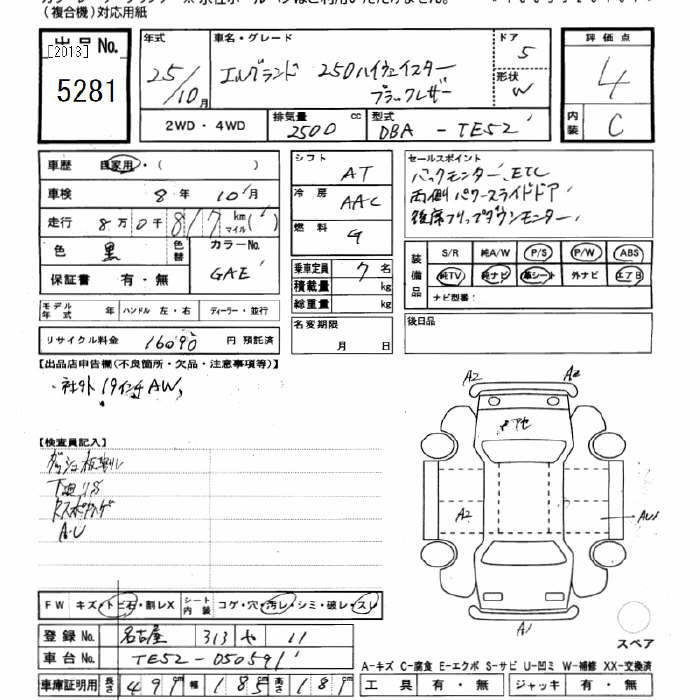 (複合機)対応用紙
出品No. [2013] 5281
年式 25/10月
車名・グレード エルグランド 250ハイウェイスター ブラックレザー
ドア 5
形状 W
評価点 4
内装 C
2WD・4WD
排気量 2500 cc
型式 DBA - TE52
車歴 自家用・( )
車検 8年 10月
走行 8万0千817 km マイル( )
色 黒 色替 カラーNo. GAE
保証書 有・無
モデル年式 年 ハンドル 左・右 ディーラー・並行
リサイクル料金 16090 円 預託済
シフト AT
冷房 AAC
燃料 G
乗車定員 7 名
積載量 kg
総重量 kg
名変期限 月 日
セールスポイント
バックモニター、ETC
両側パワースライドドア
後席フリップダウンモニター
装備品 S/R 純A/W P/S P/W ABS
純TV 純ナビ 革シート 外ナビ エアB
ナビ型番:
後日品
【出品店申告欄(不良箇所・欠品・注意事項等)】
・社外19インチAW
【検査員記入】
下廻りS
A・U
A2 A2
A2
A1
FW キズ・トビ石・割レX シート内装 コゲ・穴・汚レ・シミ・破レ・スレ
登録No. 名古屋 313 や 11
車台No. TE52-050591
車庫証明用 長さ 491 幅 185 高さ 181
スペア
A-キズ C-腐食 E-エクボ S-サビ U-凹ミ W-補修 XX-交換済
工具 有・無 ジャッキ 有・無